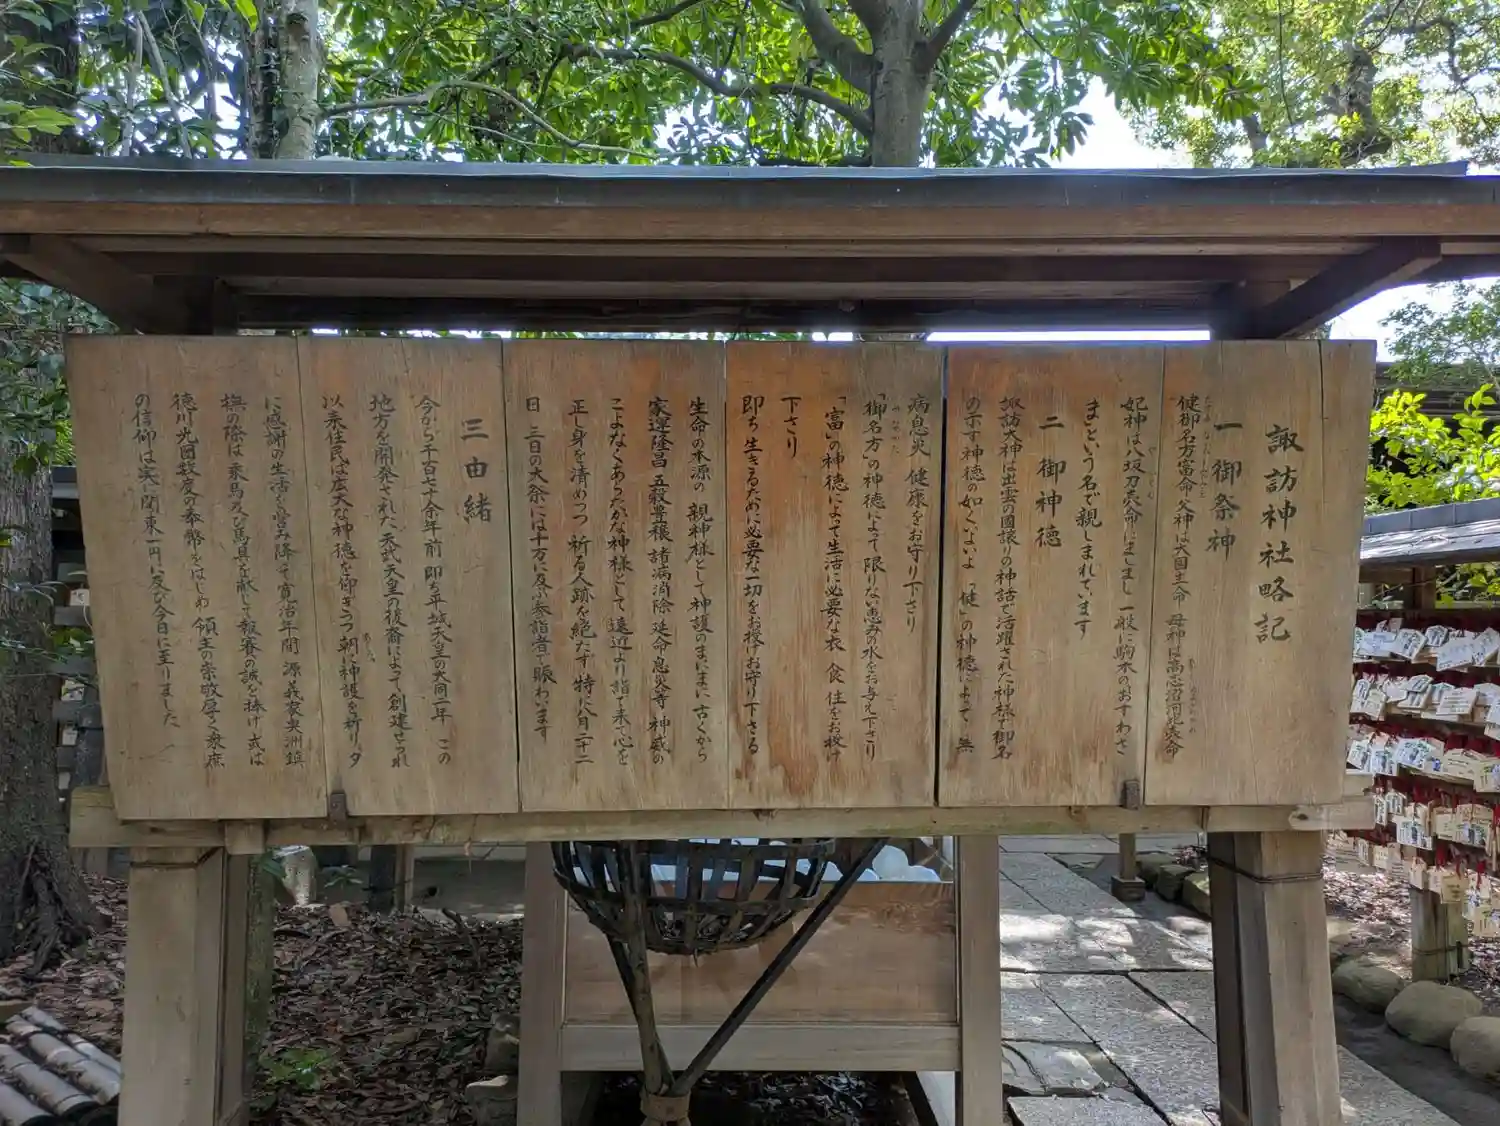 諏訪神社略記
一 御祭神
健御名方富命 父神は大国主命 母神は高志沼河比売命
妃神は八坂刀売命にましまし 一般に駒木のおすわさ
まという名で親しまれています
二 御神徳
諏訪大神は出雲の國譲りの神話で活躍された神様で御名
の示す神徳の如くつよいよ 「健」の神徳によって 無
病息災 健康をお守り下さり
「御名方」の神徳によって 限りない恵みの水をお与え下さり
「富」の神徳によって生活に必要な衣 食 住をお授け
下さり
即ち 生きるために必要な一切をお授けお守り下さる
生命の本源の 親神様として神護のまにまに 古くから
家運隆昌 五穀豊穣 諸病消除 延命息災等 神威の
こよなくあらたかな神様として 遠近より詣で来て心を
正し身を清めつつ 祈る人跡を絶たず 特に八月二十二
日 三日の大祭には十万に及ぶ参詣者で賑わいます
三 由緒
今から千百七十余年前 即ち平城天皇の大同二年 この
地方を開発された 天武天皇の後裔によって創建せられ
以来住民は広大な神徳を仰ぎつつ 朝に神護を祈り 夕
に感謝の生活を営み降って 寛治年間 源義家奥洲鎮
撫の際は 乗馬及び馬具を献じて報賽の誠を捧げ 或は
徳川光圀数度の奉幣をはじめ 領主の崇敬厚く 衆庶
の信仰は実に関東一円に及び今日に至りました